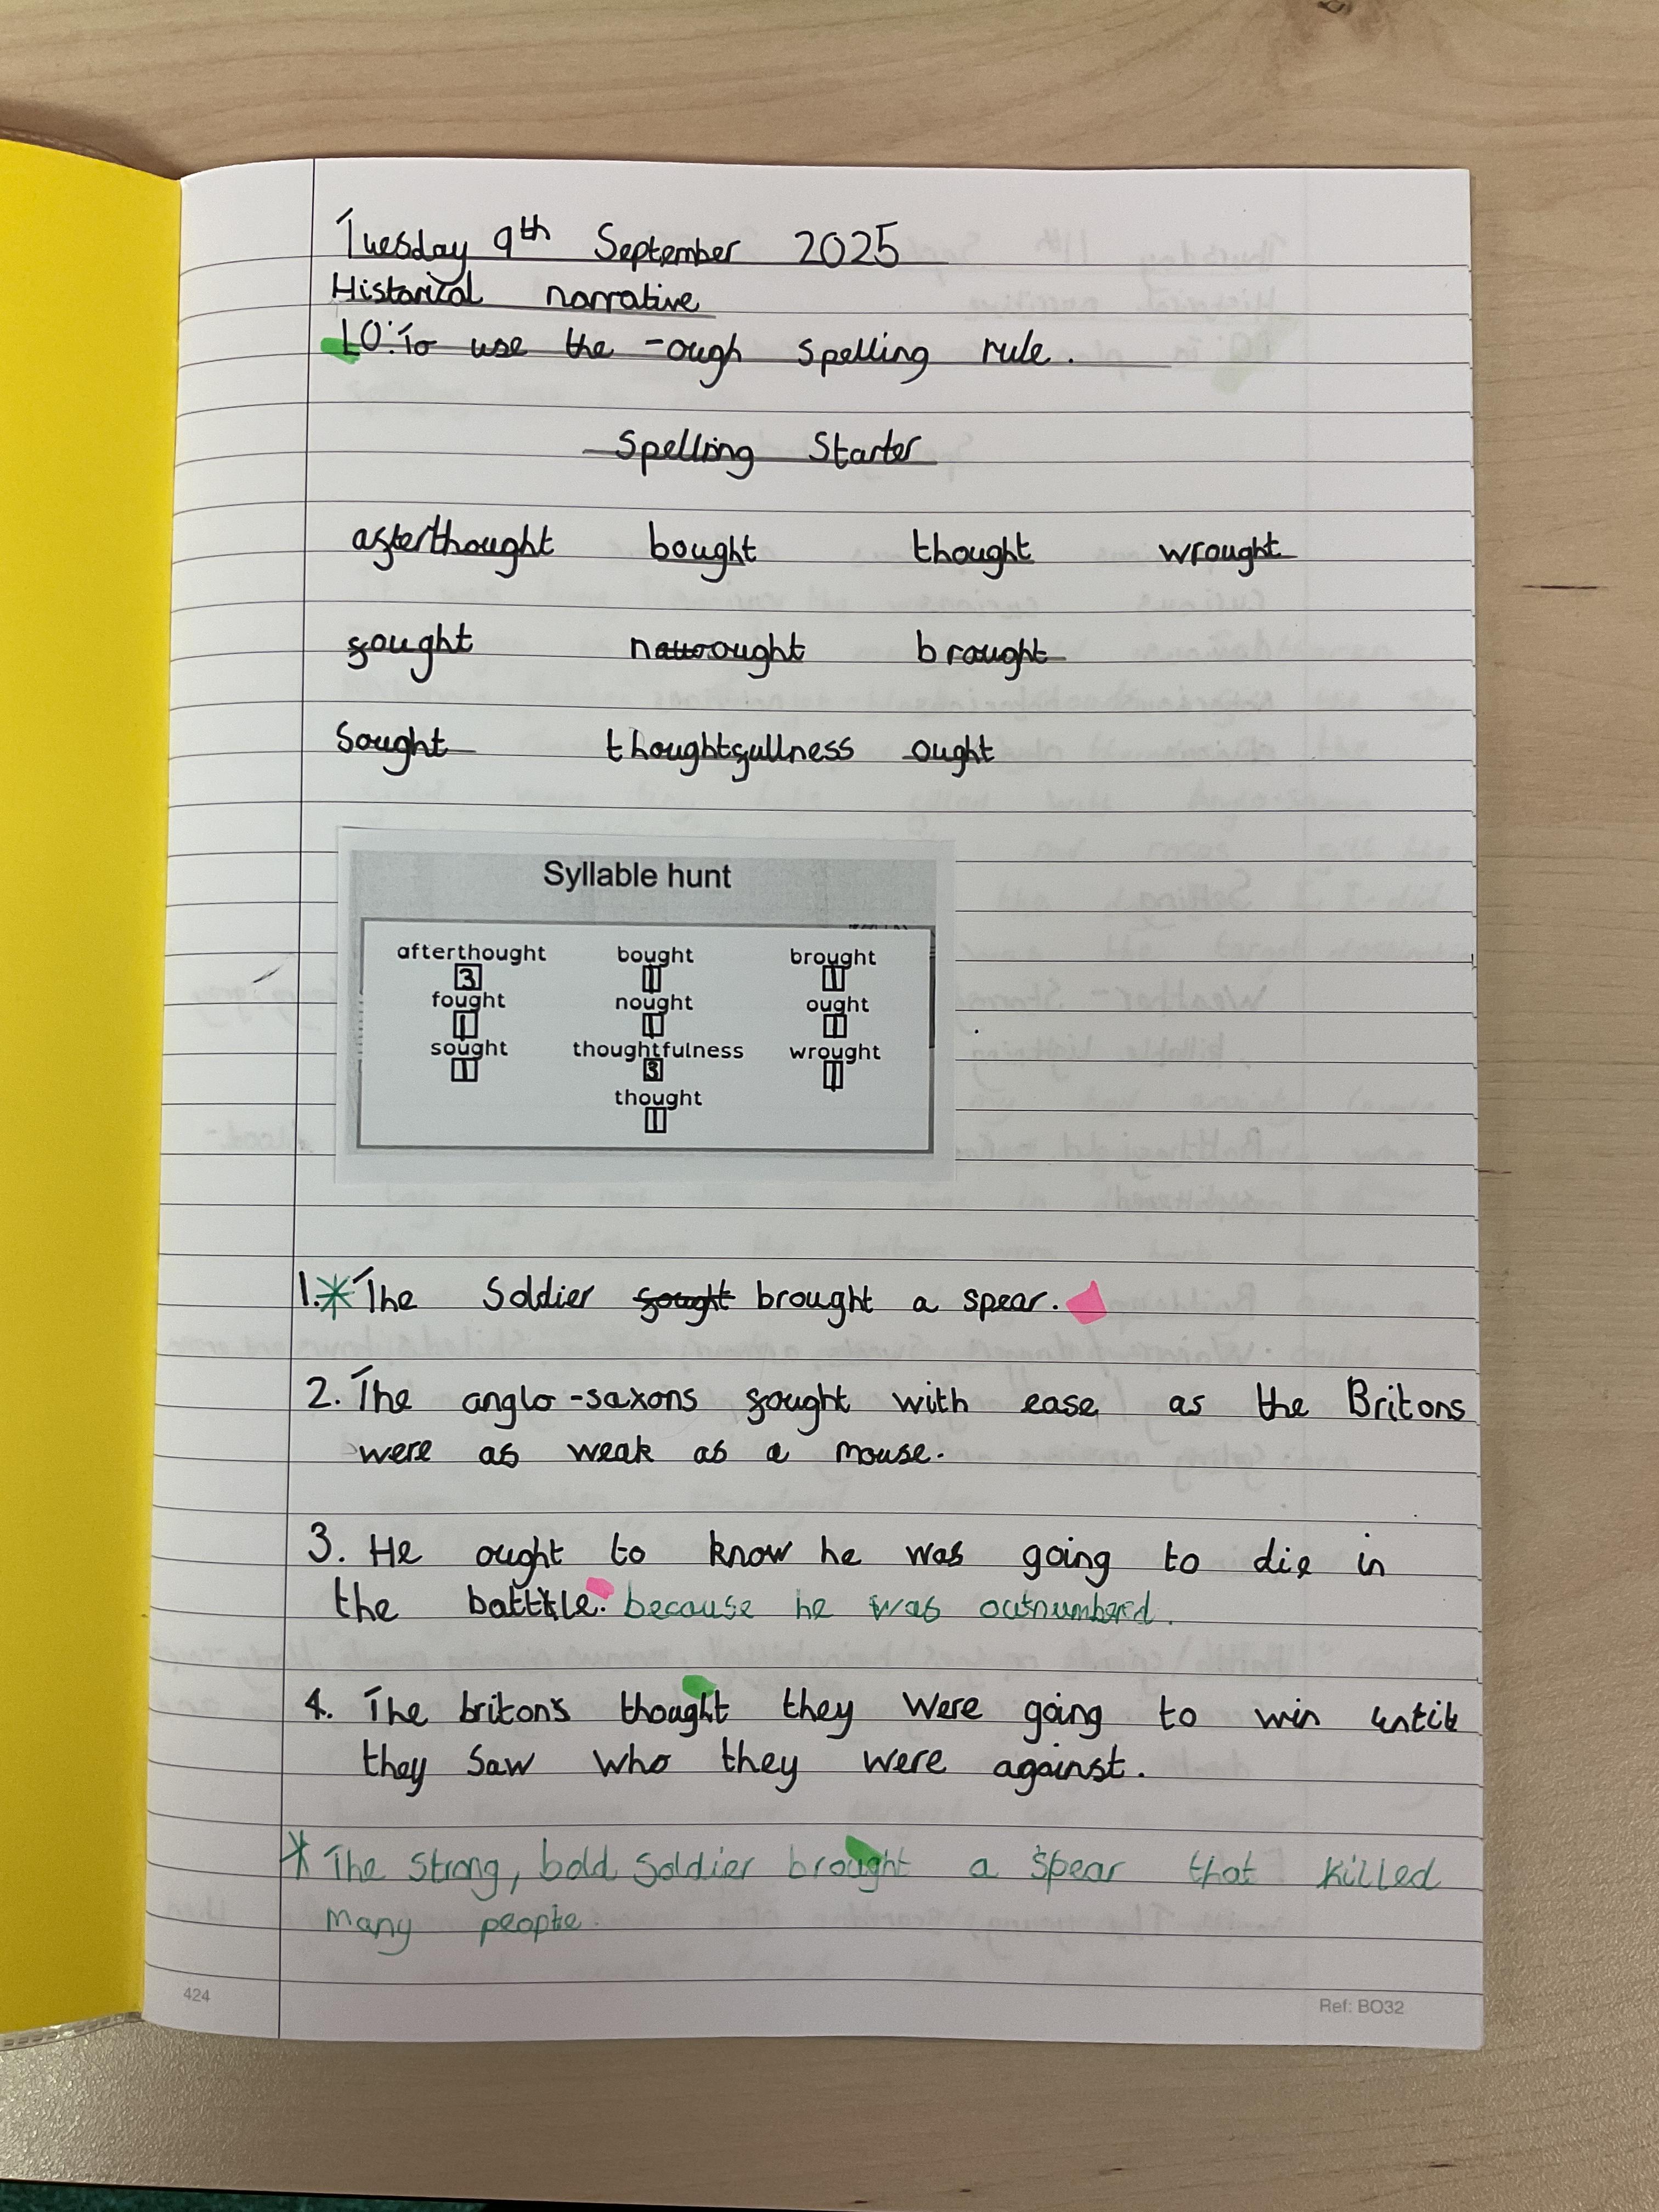 Tuesday 9th September 2025
Historical narrative
LO: To use the -ough spelling rule.
Spelling Starter
afterthought bought thought wrought
fought nought brought
Sought thoughtfullness ought
Syllable hunt
afterthought bought brought
3 1 1
fought nought ought
1 1 1
sought thoughtfulness wrought
1 3 1
thought
1
1.* The Soldier fought brought a spear.
2. The anglo-saxons fought with ease as the Britons
were as weak as a mouse.
3. He ought to know he was going to die in
the battle. because he was outnumbered.
4. The britons thought they were going to win until
they saw who they were against.
* The strong, bold soldier brought a spear that killed
many people.
424
Ref: BO32